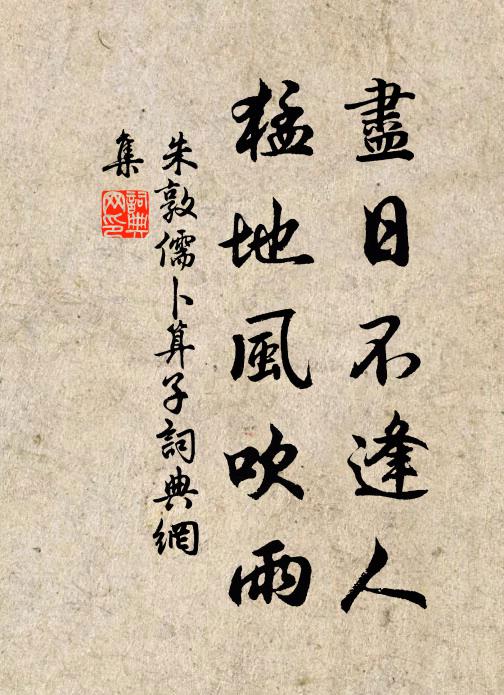 盡日不逢人
猛地風吹雨
朱敦儒卜算子詞典網
集
詞典
网印